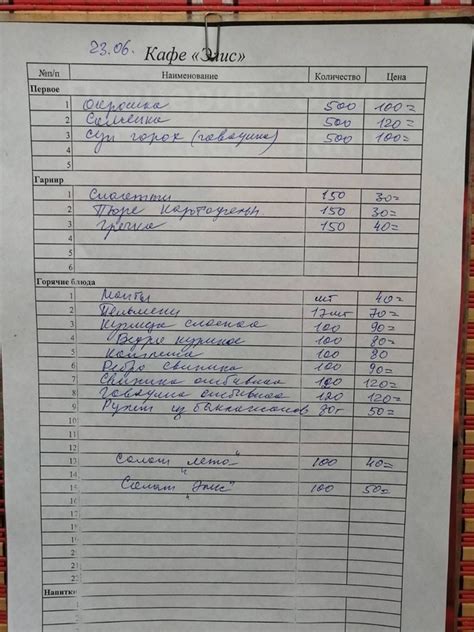 23.06. Кафе «Элис»
№п/п Наименование Количество Цена
Первое
1 Окрошка 500 100=
2 Солянка 500 120=
3 Суп горох (говядина) 500 100=
4
5
Гарнир
1 Спагетти 150 30=
2 Пюре картофельн 150 30=
3 Гречка 150 40=
4
5
6
Горячие блюда
1 Манты шт 40=
2 Пельмени 17шт 70=
3 Курица слоеная 100 90=
4 Бедро куриное 100 80=
5 Котлета 100 80
6 Ребро свинина 100 90=
7 Свинина отбивная 120 120=
8 Говядина отбивная 120 120=
9 Рулет из баклажанов 80г 50=
10
11
12
13 Салат "Лето" 100 40=
14
15 Салат "Элис" 100 50=
16
17
18
19
20
21
22
Напитки
1
2
3